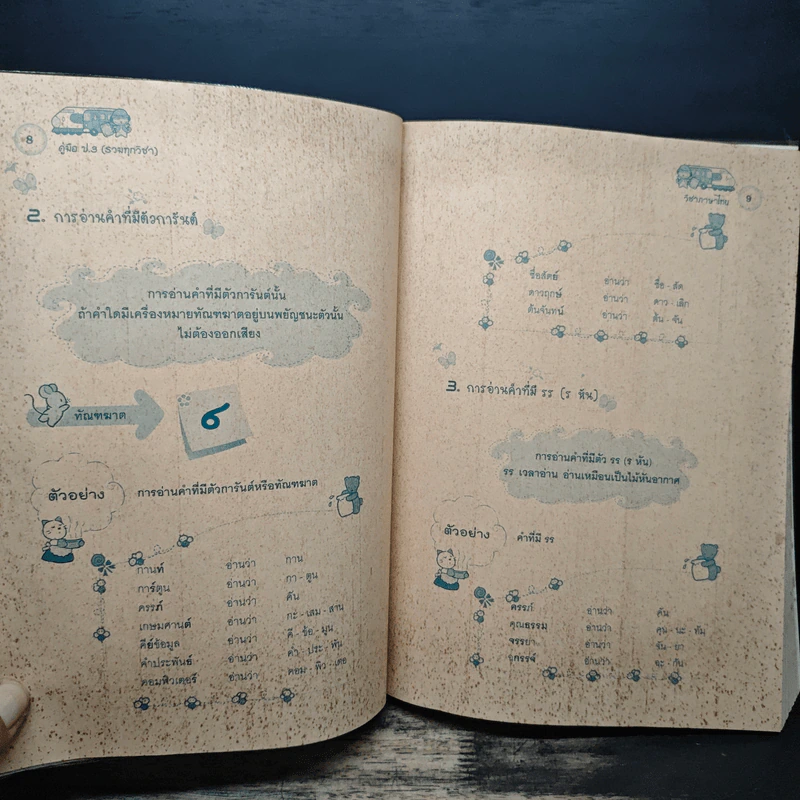 8
คู่มือ ป.3 (รวมทุกวิชา)
2. การอ่านคำที่มีตัวการันต์
การอ่านคำที่มีตัวการันต์นั้น
ถ้าคำใดมีเครื่องหมายทัณฑฆาตอยู่บนพยัญชนะตัวนั้น
ไม่ต้องออกเสียง
ทัณฑฆาต
์
ตัวอย่าง การอ่านคำที่มีตัวการันต์หรือทัณฑฆาต
กานท์ อ่านว่า กาน
การ์ตูน อ่านว่า กา - ตูน
ครรภ์ อ่านว่า คัน
เกษมศานต์ อ่านว่า กะ - เสม - สาน
คีย์ข้อมูล อ่านว่า คี - ข้อ - มูน
คำประพันธ์ อ่านว่า คำ - ประ - พัน
คอมพิวเตอร์ อ่านว่า คอม - พิว - เตอ
9
วิชาภาษาไทย
ซื่อสัตย์ อ่านว่า ซื่อ - สัด
ดาวฤกษ์ อ่านว่า ดาว - เลิก
ต้นจันทน์ อ่านว่า ต้น - จัน
3. การอ่านคำที่มี รร (ร หัน)
การอ่านคำที่มีตัว รร (ร หัน)
รร เวลาอ่าน อ่านเหมือนเป็นไม้หันอากาศ
ตัวอย่าง คำที่มี รร
ครรภ์ อ่านว่า คัน
คุณธรรม อ่านว่า คุน - นะ - ทัม
จรรยา อ่านว่า จัน - ยา
อ่านว่า จะ - กัน